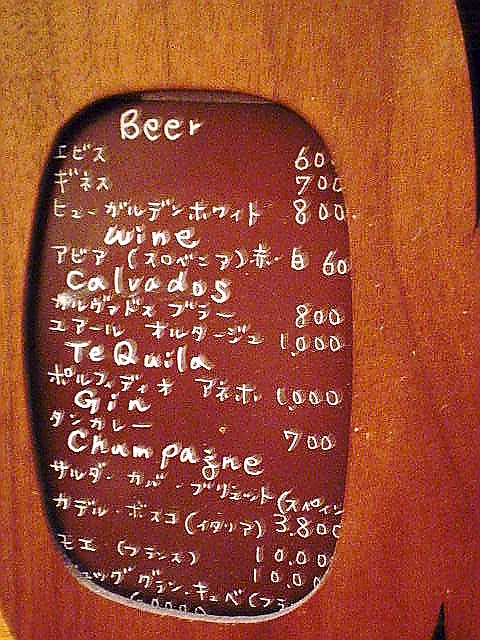 Beer
エビス 60
ギネス 700
ヒューガルデンホワイト 800
Wine
アビア (スロベニア)赤・白 60
Calvados
カルヴァドス ブラー 800
ユアール オルダージュ 1,000
TeQuila
ポルフィディオ アネホ 1,000
Gin
タンカレー 700
Champagne
サルダ・カバ・ブリュット(スペイン
カデル・ボスコ(イタリア) 3.800
モエ (フランス) 10.00
グラン・キュベ(フラ 10.0